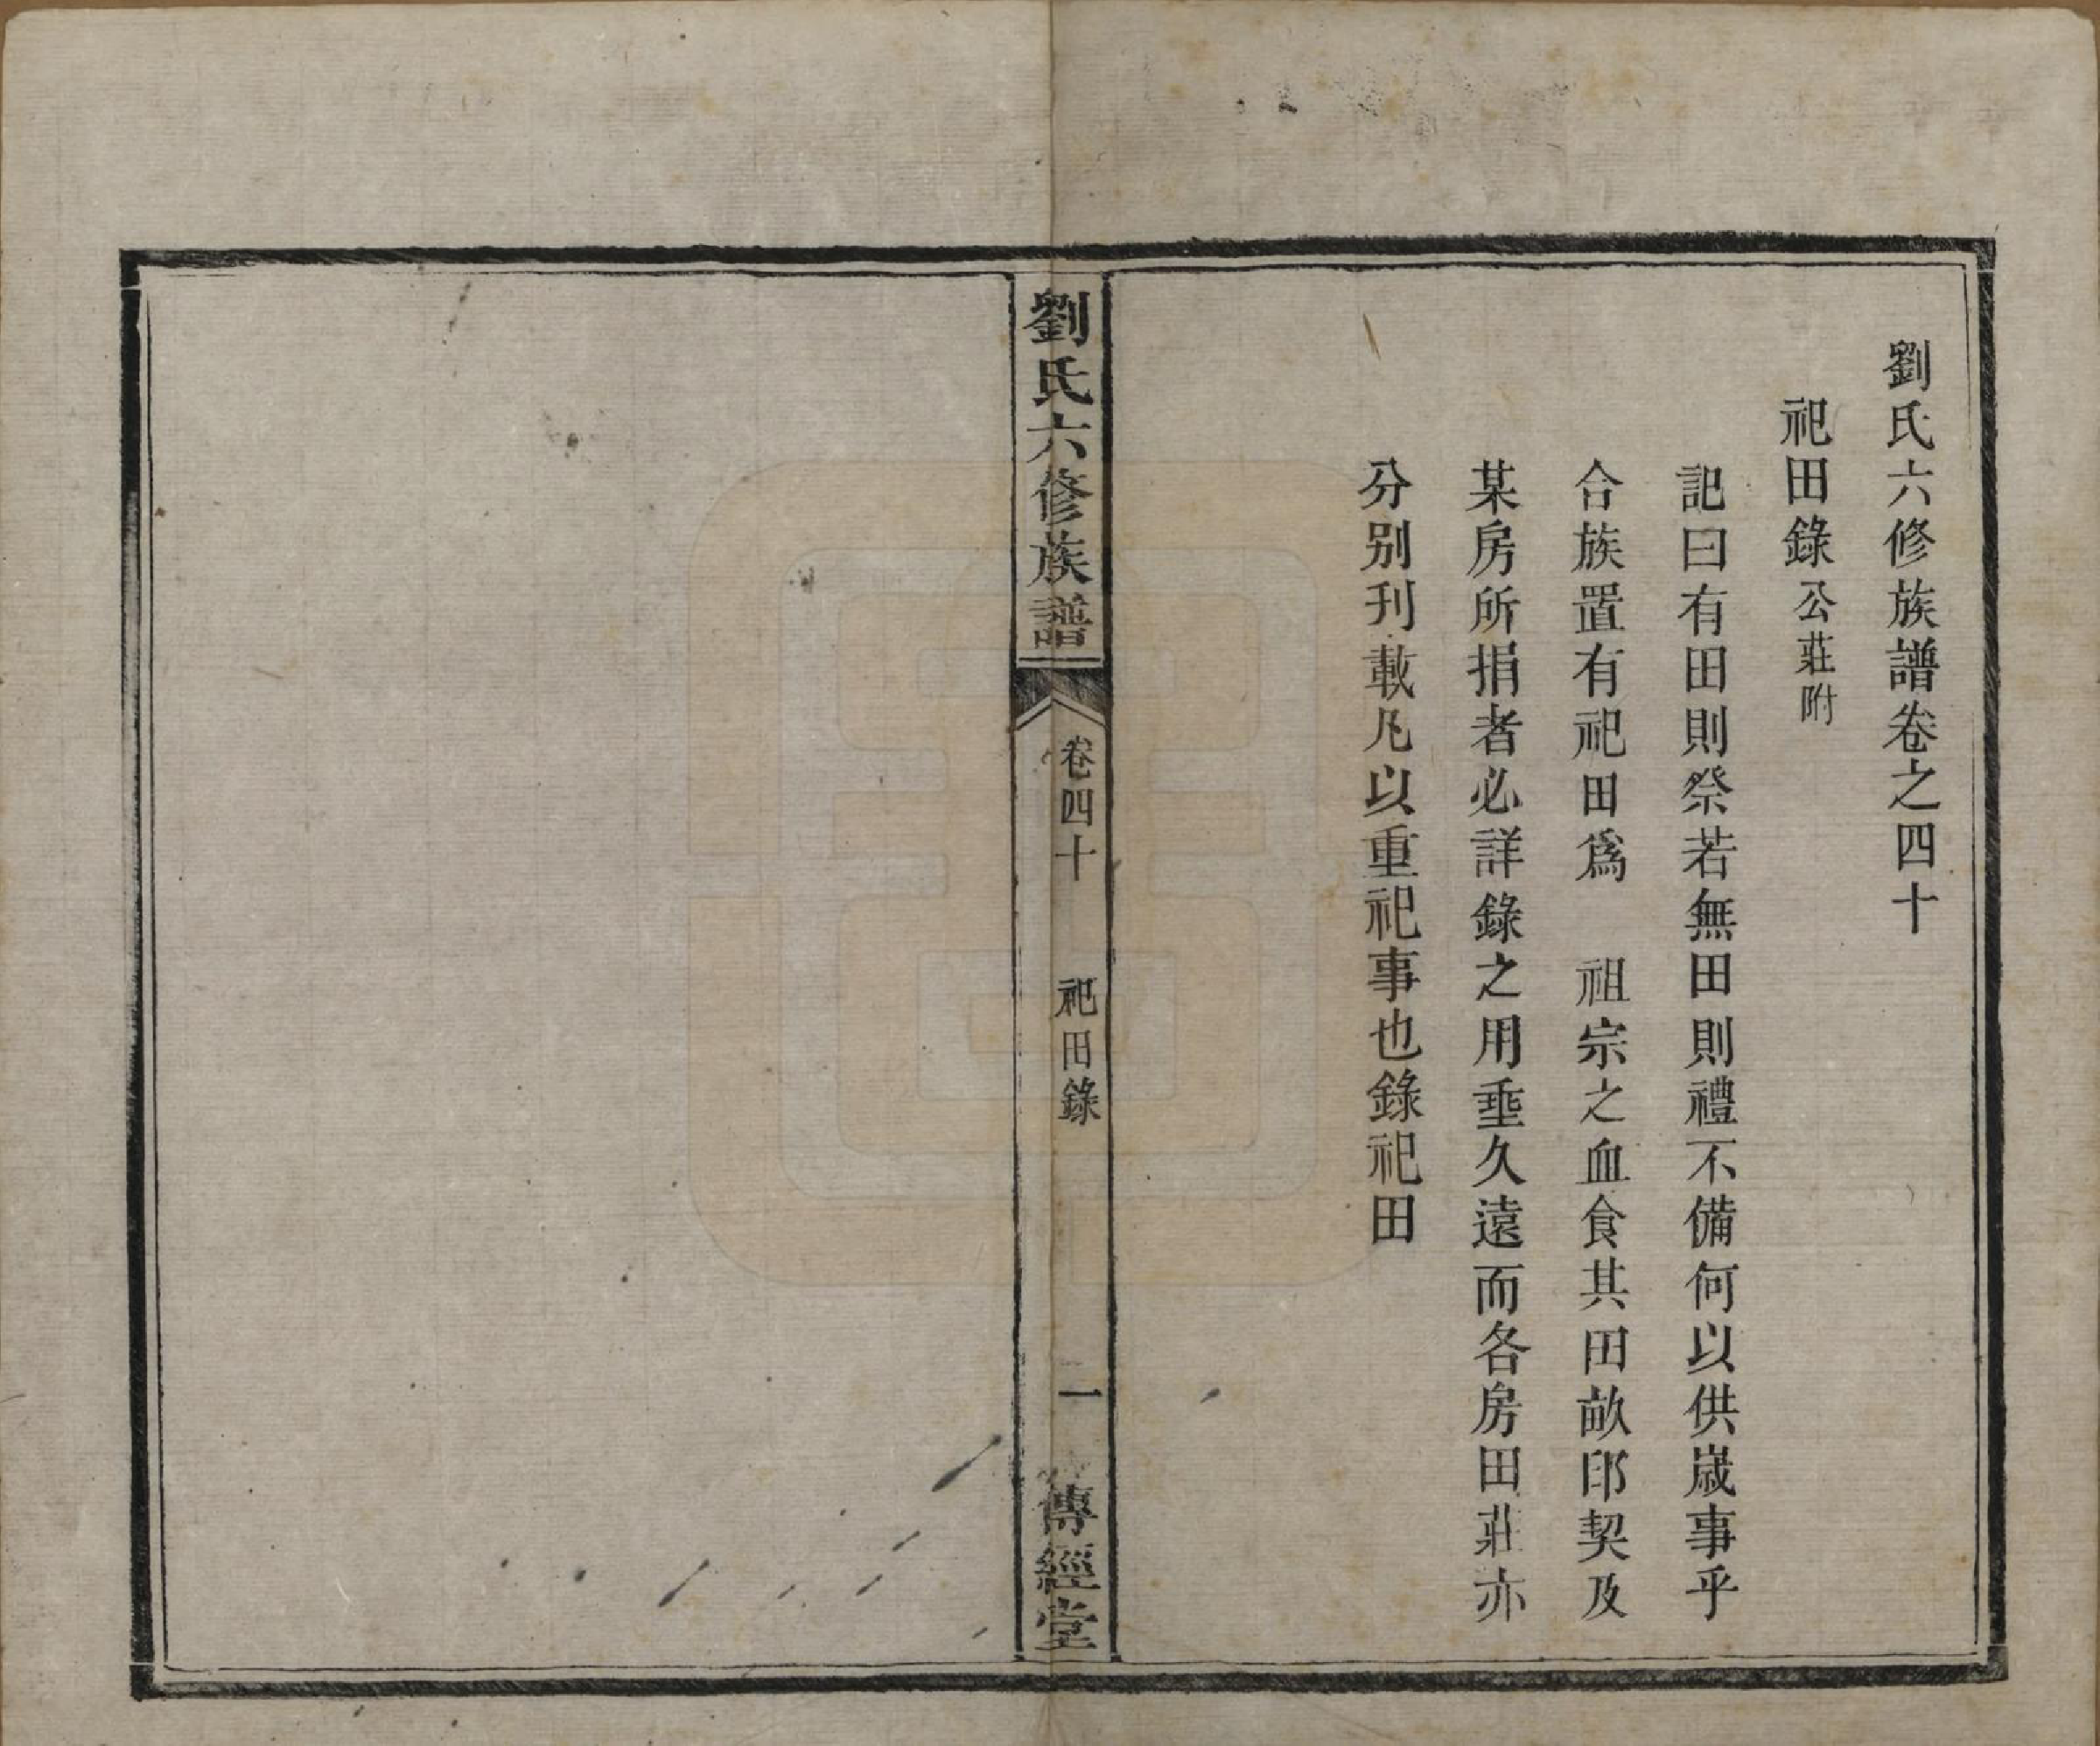 劉氏六修族譜卷之四十
祀田錄公莊附
記曰有田則祭若無田則禮不備何以供嵗事乎
合族置有祀田爲　祖宗之血食其田畝邱契及
某房所捐者必詳錄之用垂久遠而各房田莊亦
分别刊載凡以重祀事也錄祀田
劉氏六修族譜
卷四十
祀田錄
一
傳經堂